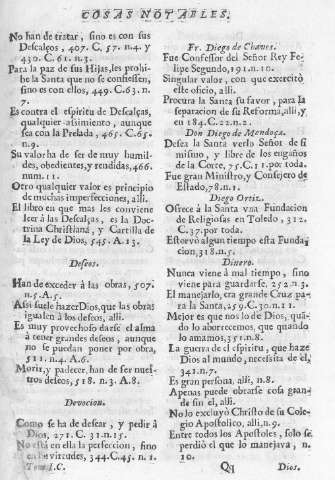 COSAS NOTABLES.
No han de tratar, sino es con sus
Descalços, 407. C. 57. n.4. y
430. C. 61. n.3.
Para la paz de sus Hijas, les prohi-
be la Santa que no se confiessen,
sino es con ellos, 449. C.63. n.
7.
Es contra el espiritu de Descalças,
qualquier assimiento, aunque
sea con la Prelada, 465. C.65.
n.9.
Su valor ha de ser de muy humil-
des, obedientes, y rendidas, 466.
num. 11.
Otro qualquier valor es principio
de muchas imperfecciones, alli.
El libro en que mas les conviene
leer à las Descalças, es la Doc-
trina Christiana, y Cartilla de
la Ley de Dios, 545. A.13.
Deseos.
Han de exceder à las obras, 507.
n.5.A.5.
Assi suele hazer Dios, que las obras
igualen à los deseos, alli.
Es muy provechoso darse el alma
à tener grandes deseos, aunque
no se puedan poner por obra,
511. n.4. A.6.
Morir, y padecer, han de ser nues-
tros deseos, 518. n.3. A.8.
Devocion.
Como se ha de desear, y pedir à
Dios, 271. C. 31. n.15.
No està en ella la perfeccion, sino
en las virtudes, 344. C.45. n. 1.
Tom. I. C.
Fr. Diego de Chaves.
Fue Confessor del Señor Rey Fe-
lipe Segundo, 191. n.10.
Singular valor, con que exercitò
este oficio, alli.
Procura la Santa su favor, para la
separacion de su Reforma, alli, y
en 184. C.22. n.2.
Don Diego de Mendoça.
Desea la Santa verlo Señor de si
mismo, y libre de los engaños
de la Corte, 75. C.11. por toda.
Fue gran Ministro, y Consejero de
Estado, 78. n.1.
Diego Ortiz.
Ofrece à la Santa vna Fundacion
de Religiosas en Toledo, 312.
C.37. por toda.
Estorvò algun tiempo esta Funda-
cion, 318. n.5.
Dinero.
Nunca viene à mal tiempo, sino
viene para guardarse, 252. n.3.
El manejarlo, era grande Cruz pa-
ra la Santa, 259. C.30. n.11.
Mejor es que nos lo de Dios, quã-
do lo aborrecemos, que quando
lo amamos, 351. n.8.
La guerra de el espiritu, que haze
Dios al mundo, necessita de èl,
341. n.7.
Es gran persona, alli, n.8.
Apenas puede obrarse cosa gran-
de sin el, alli.
No lo excluyò Christo de su Cole-
gio Apostolico, alli, n.9.
Entre todos los Apostoles, solo se
perdiò el que lo manejava, n.
10.
Qq Dios.